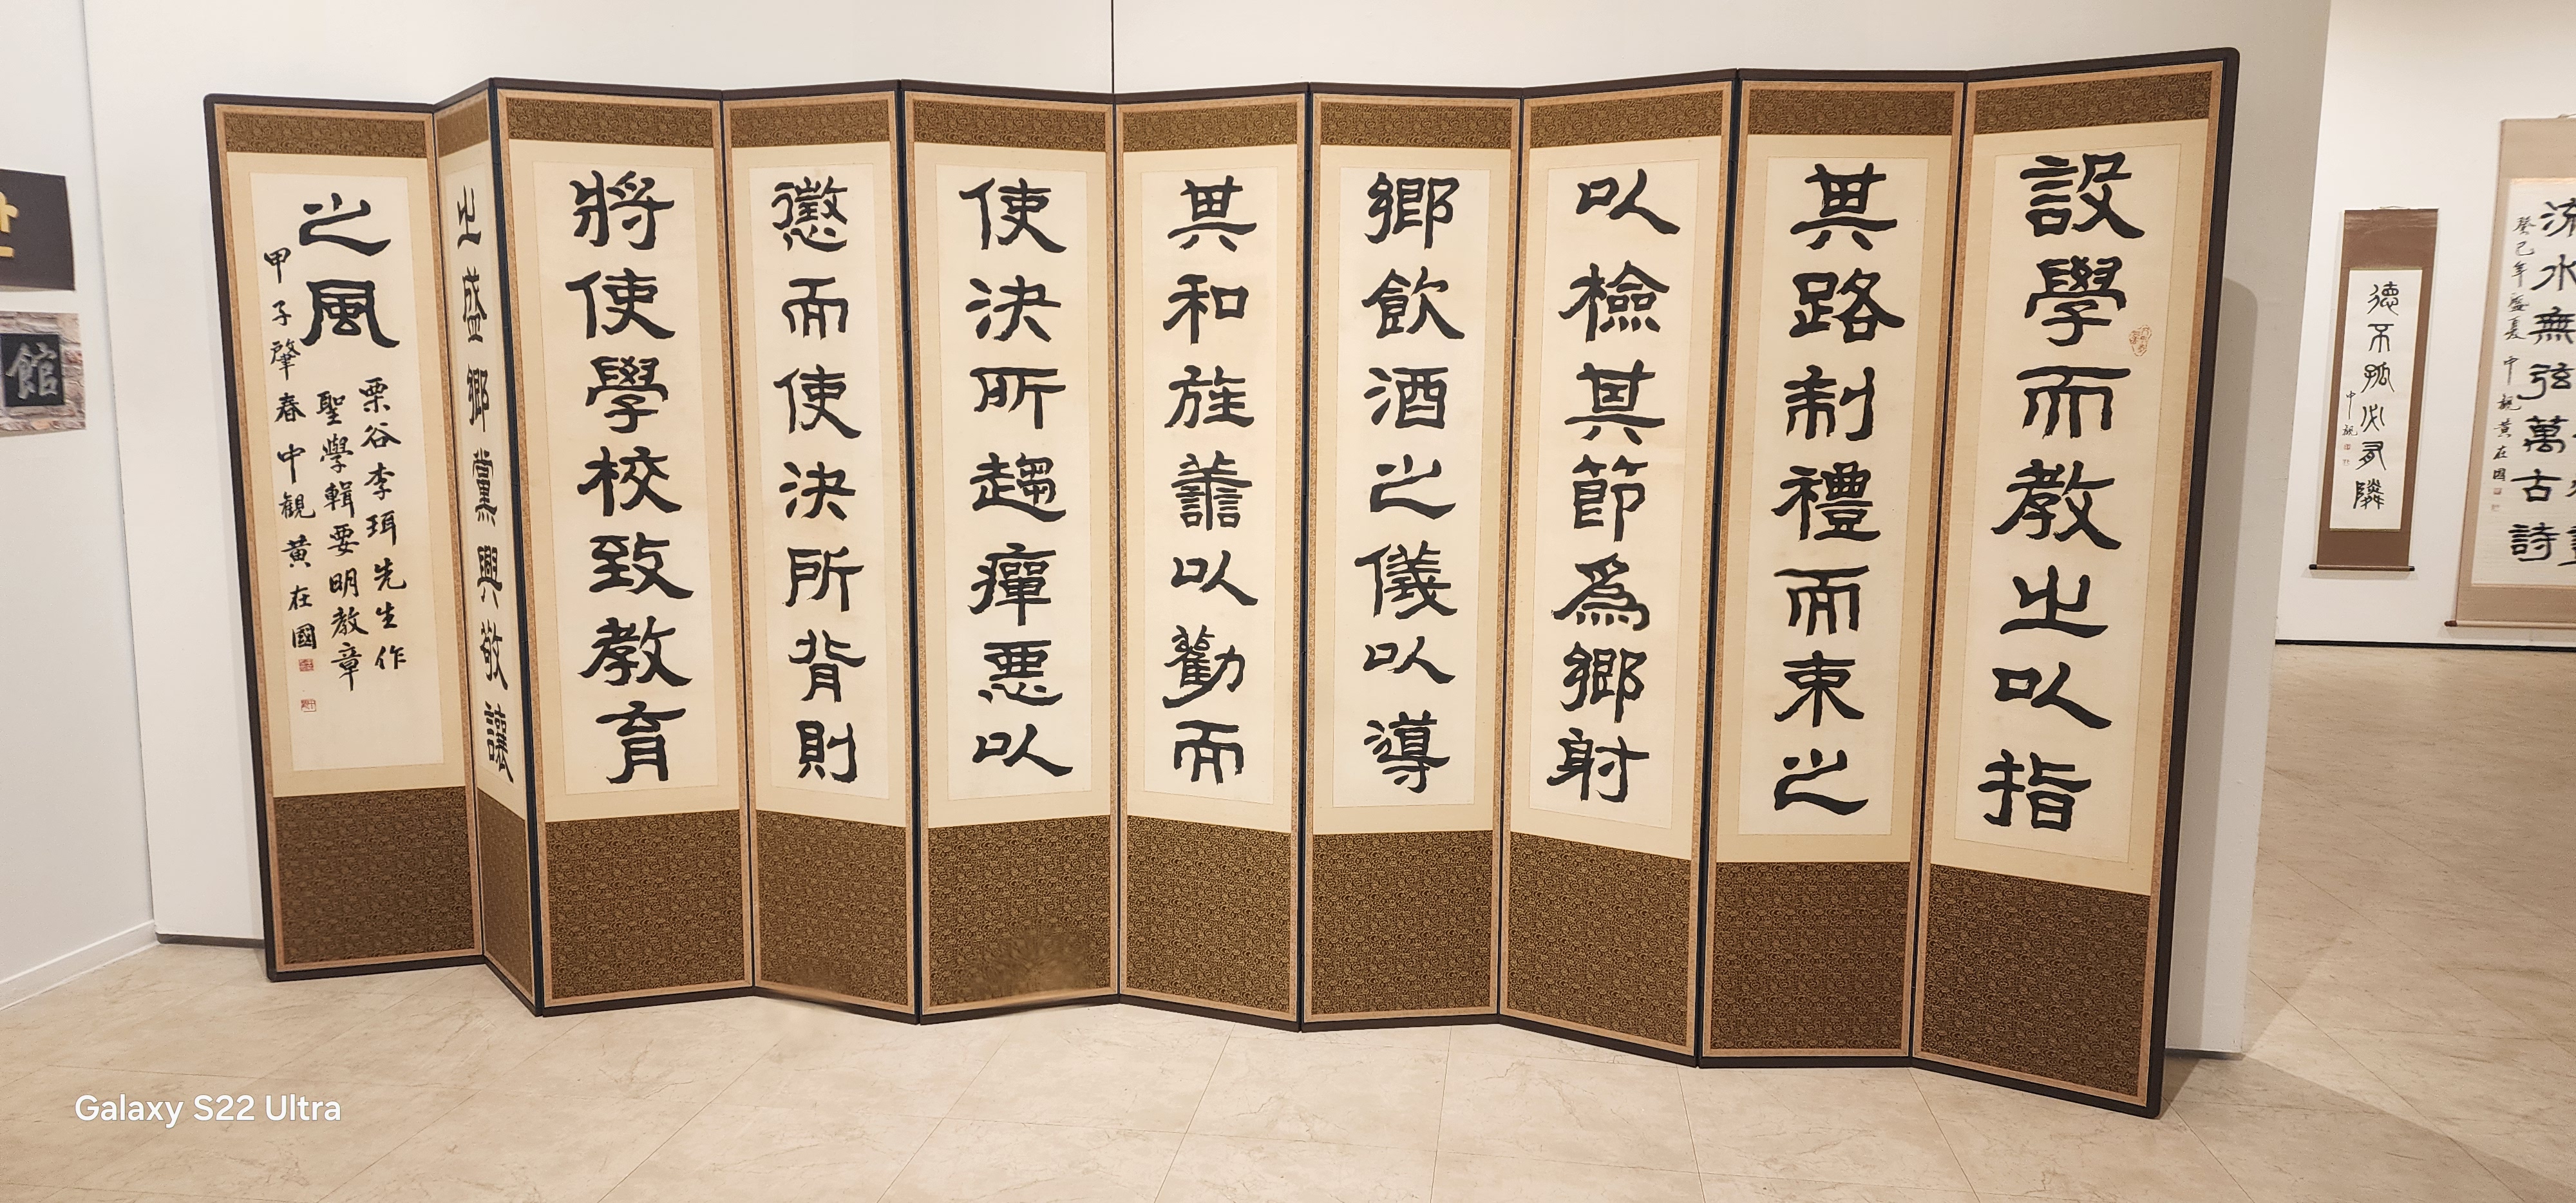 設學而教之以指
其路制禮而束之
以檢其節爲鄉射
鄉飲酒之儀以導
其和旌善以勸而
使決所趨癉惡以
懲而使決所背則
將使學校致教育
之盛鄉黨興敬讓
之風
栗谷李珥先生作
聖學輯要明教章
甲子肇春 中観 黃在國
德不孤必有隣
中観
流水無弦萬古詩
癸巳年盛夏 中観 黃在國
館
Galaxy S22 Ultra